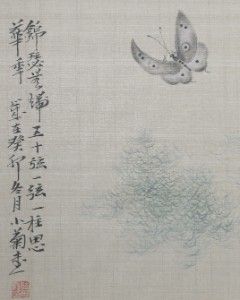 錦瑟無端五十弦一弦一柱思
華年 歲在癸卯冬月小菊